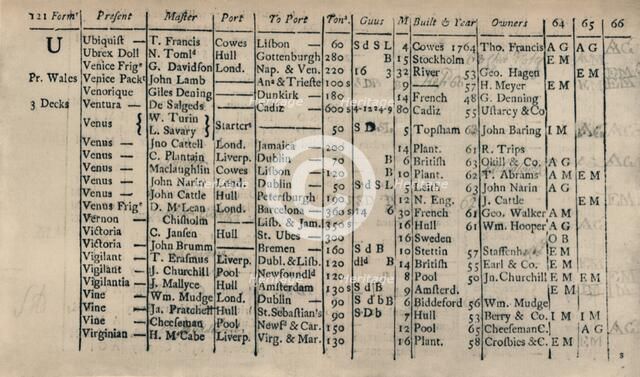 121 Formʳ Present Master Port To Port Tonˢ. Guus M Built & Year Owners 64 65 66
U Ubiquist — T. Francis Cowes Lisbon — 60 S d S L 4 Cowes 1764 Tho. Francis A G A G
Ubrex Doll N. Tomlˢ Hull Gottenburgh 280 B 15 Stockholm E M
Venice Frigᵗ G. Davidson Lond. Nap. & Ven. 220 16 3 32 River 53 Geo. Hagen E M
Pr. Wales Venice Packᵗ John Lamb Anˢ & Trieste 100 s 9 H. Meyer E M
Venorique Giles Dening Dunkirk — 180 14 French 48 G. Denning
3 Decks Ventura — De Salgeds Cadiz 600 s 4-1224-9 80 Cadiz 55 Ustarcy & Co!
Venus { W. Turin
L. Savary } Starterˢ 50 S D 5 Topsham 63 John Baring I M A G
Venus — Jno Cattell Lond. Jamaica 200 14 Plant. 61 R. Trips
Venus — C. Plantain Liverp. Dublin 70 B 6 British 63 Okill & Co. A G
Venus — Maclaughlin Cowes Lisbon 120 B 10 Plant. 62 T. Abrams A M E M
Venus — John Narin Lond. Dublin — 50 S d S L 5 Cork 63 John Narin A G
Venus — John Cattle Hull Petersburgh 100 12 N. Eng. J. Cattle E M
Venus Frigᵗ D. McLean Lond. Barcelona — 360 s 14 6 30 French 61 Geo. Walker A M
Vernon Chisholm — Lis. & Jam. 350 s 16 Hull 61 Wm. Hooper A G
Victoria C. Jansen Hull St. Ubes — 300 16 Sweden O B
Victoria — John Brumm Bremen — 160 S d B 10 Stettin 57 Staffenha E M
Vigilant T. Erasmus Liverp. Dubl. & Lisb. 120 dld B 14 British 55 Earl & Co. E M
Vigilant J. Churchill Pool Newfoundlᵈ 120 8 Pool 50 Jn. Churchill E M E M
Vigilantia J. Mallyce Hull Amsterdam 130 s S d B 9 Amsterd. E M
Vine — Wm. Mudge Lond. Dublin — 90 S d b B 6 Biddeford 56 Wm. Mudge
Vine — Ja. Pratchell Hull St. Sebastian's 90 S D b 7 Hull 53 Berry & Co. I M I M
Vine — Cheeseman Pool Newfᵈ & Car. 150 12 Pool 65 Cheeseman C. A G
Virginian — H. McCabe Liverp. Virg. & Mar. 130 16 Plant. 58 Crosbies & C. E M E M